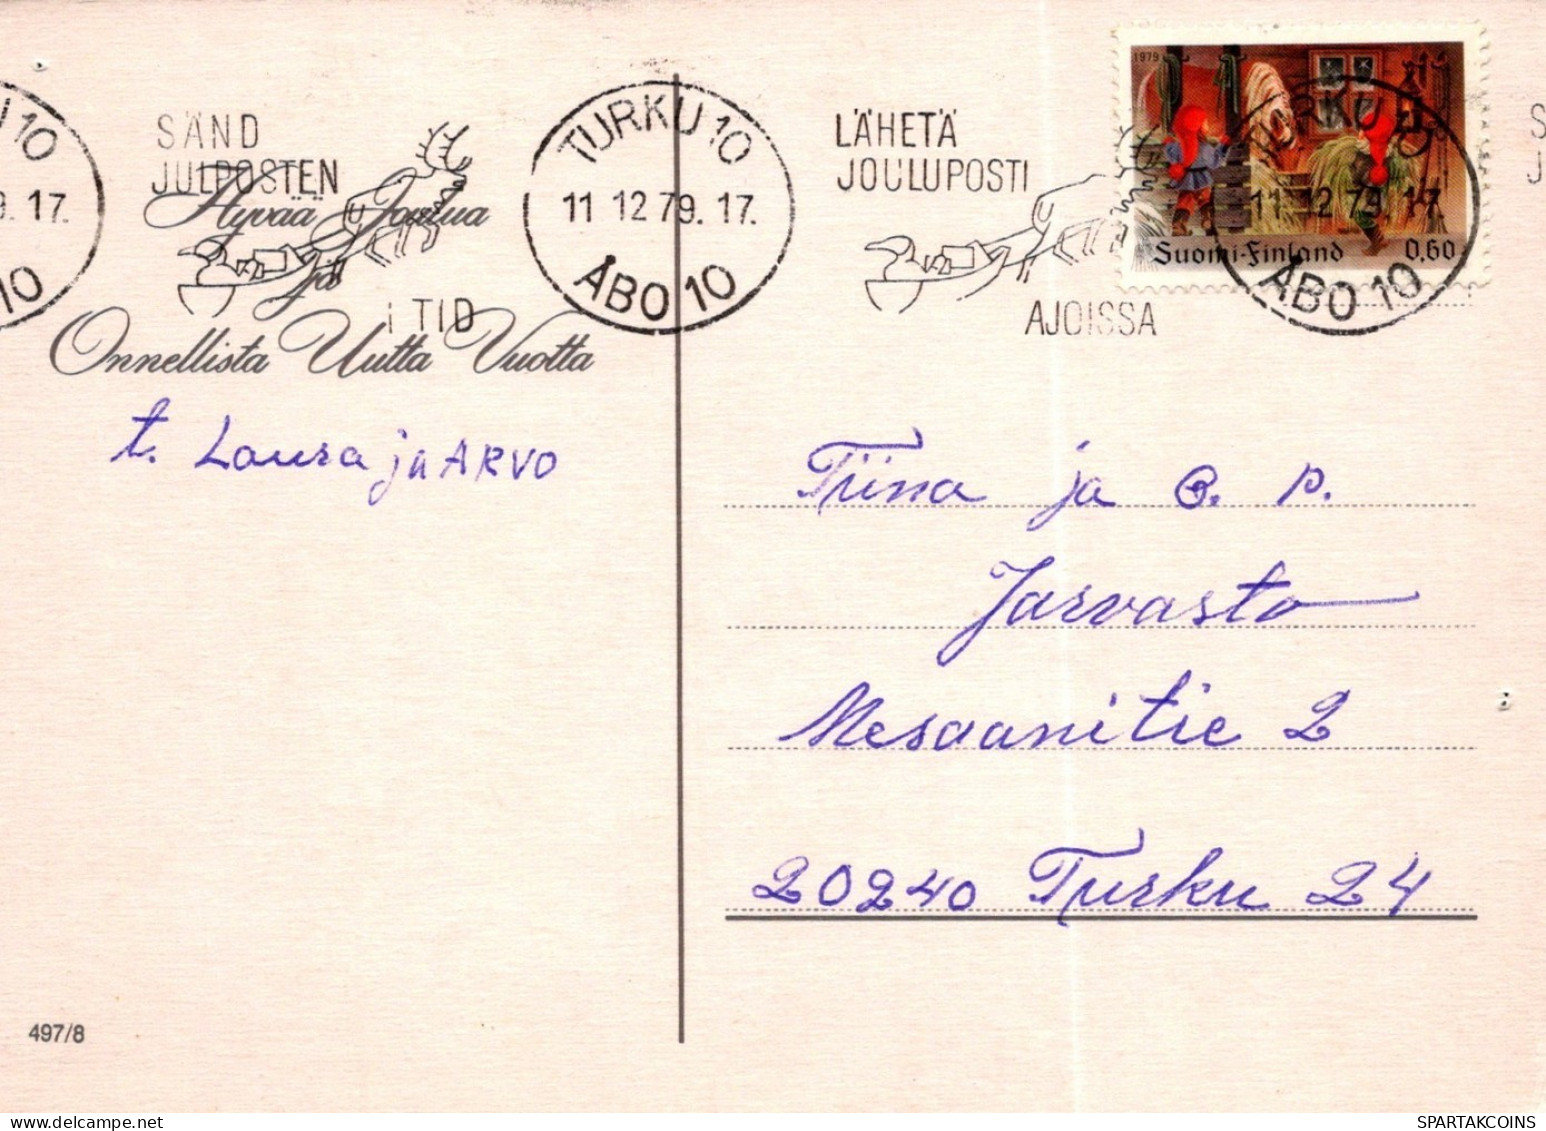 SÄND
JULPOSTEN
I TID
TURKU 10
11.12.79.17.
ÅBO 10
LÄHETÄ
JOULUPOSTI
AJOISSA
1979
Suomi-Finland 0,60
TURKU 10
11.12.79.17.
ÅBO 10
Hyvää Joulua
ja
Onnellista Uutta Vuotta
t. Laura ja ARVO
Tiina ja O. P.
Jarvasto
Mesaanitie 2
20240 Turku 24
497/8
delcampe.net
SPARTAKCOINS